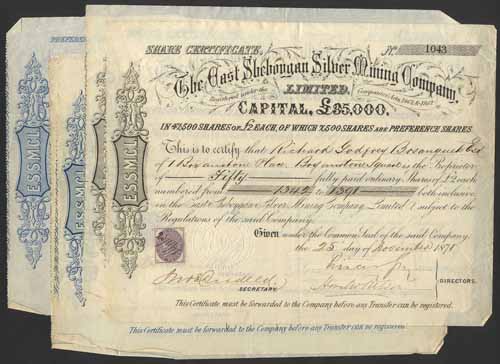 PREFERE
SHARE CERTIFICATE. No. 1043
The East Sheboygan Silver Mining Company,
LIMITED.
Registered under the Companies Acts, 1862 & 1867
CAPITAL, £35,000.
IN 17,500 SHARES OF £2 EACH, OF WHICH 7,500 SHARES ARE PREFERENCE SHARES.
This is to certify that Richard Godfrey Bosanquet Esq
of 1 Bryanston Place, Bryanston Square is the Proprietor
of Fifty fully paid ordinary Shares of £2 each
numbered from 1342 to 1391 both inclusive
in the East Sheboygan Silver Mining Company Limited subject to the
Regulations of the said Company.
Given under the Common Seal of the said Company
the 25 day of November 1878
DIRECTORS.
SECRETARY.
This Certificate must be forwarded to the Company before any Transfer can be registered.
This Certificate must be forwarded to the Company before any Transfer can be registered.
E.S.S.M.C.L.
E.S.S.M.C.L.
E.S.S.M.C.L.
E.S.S.M.C.L.